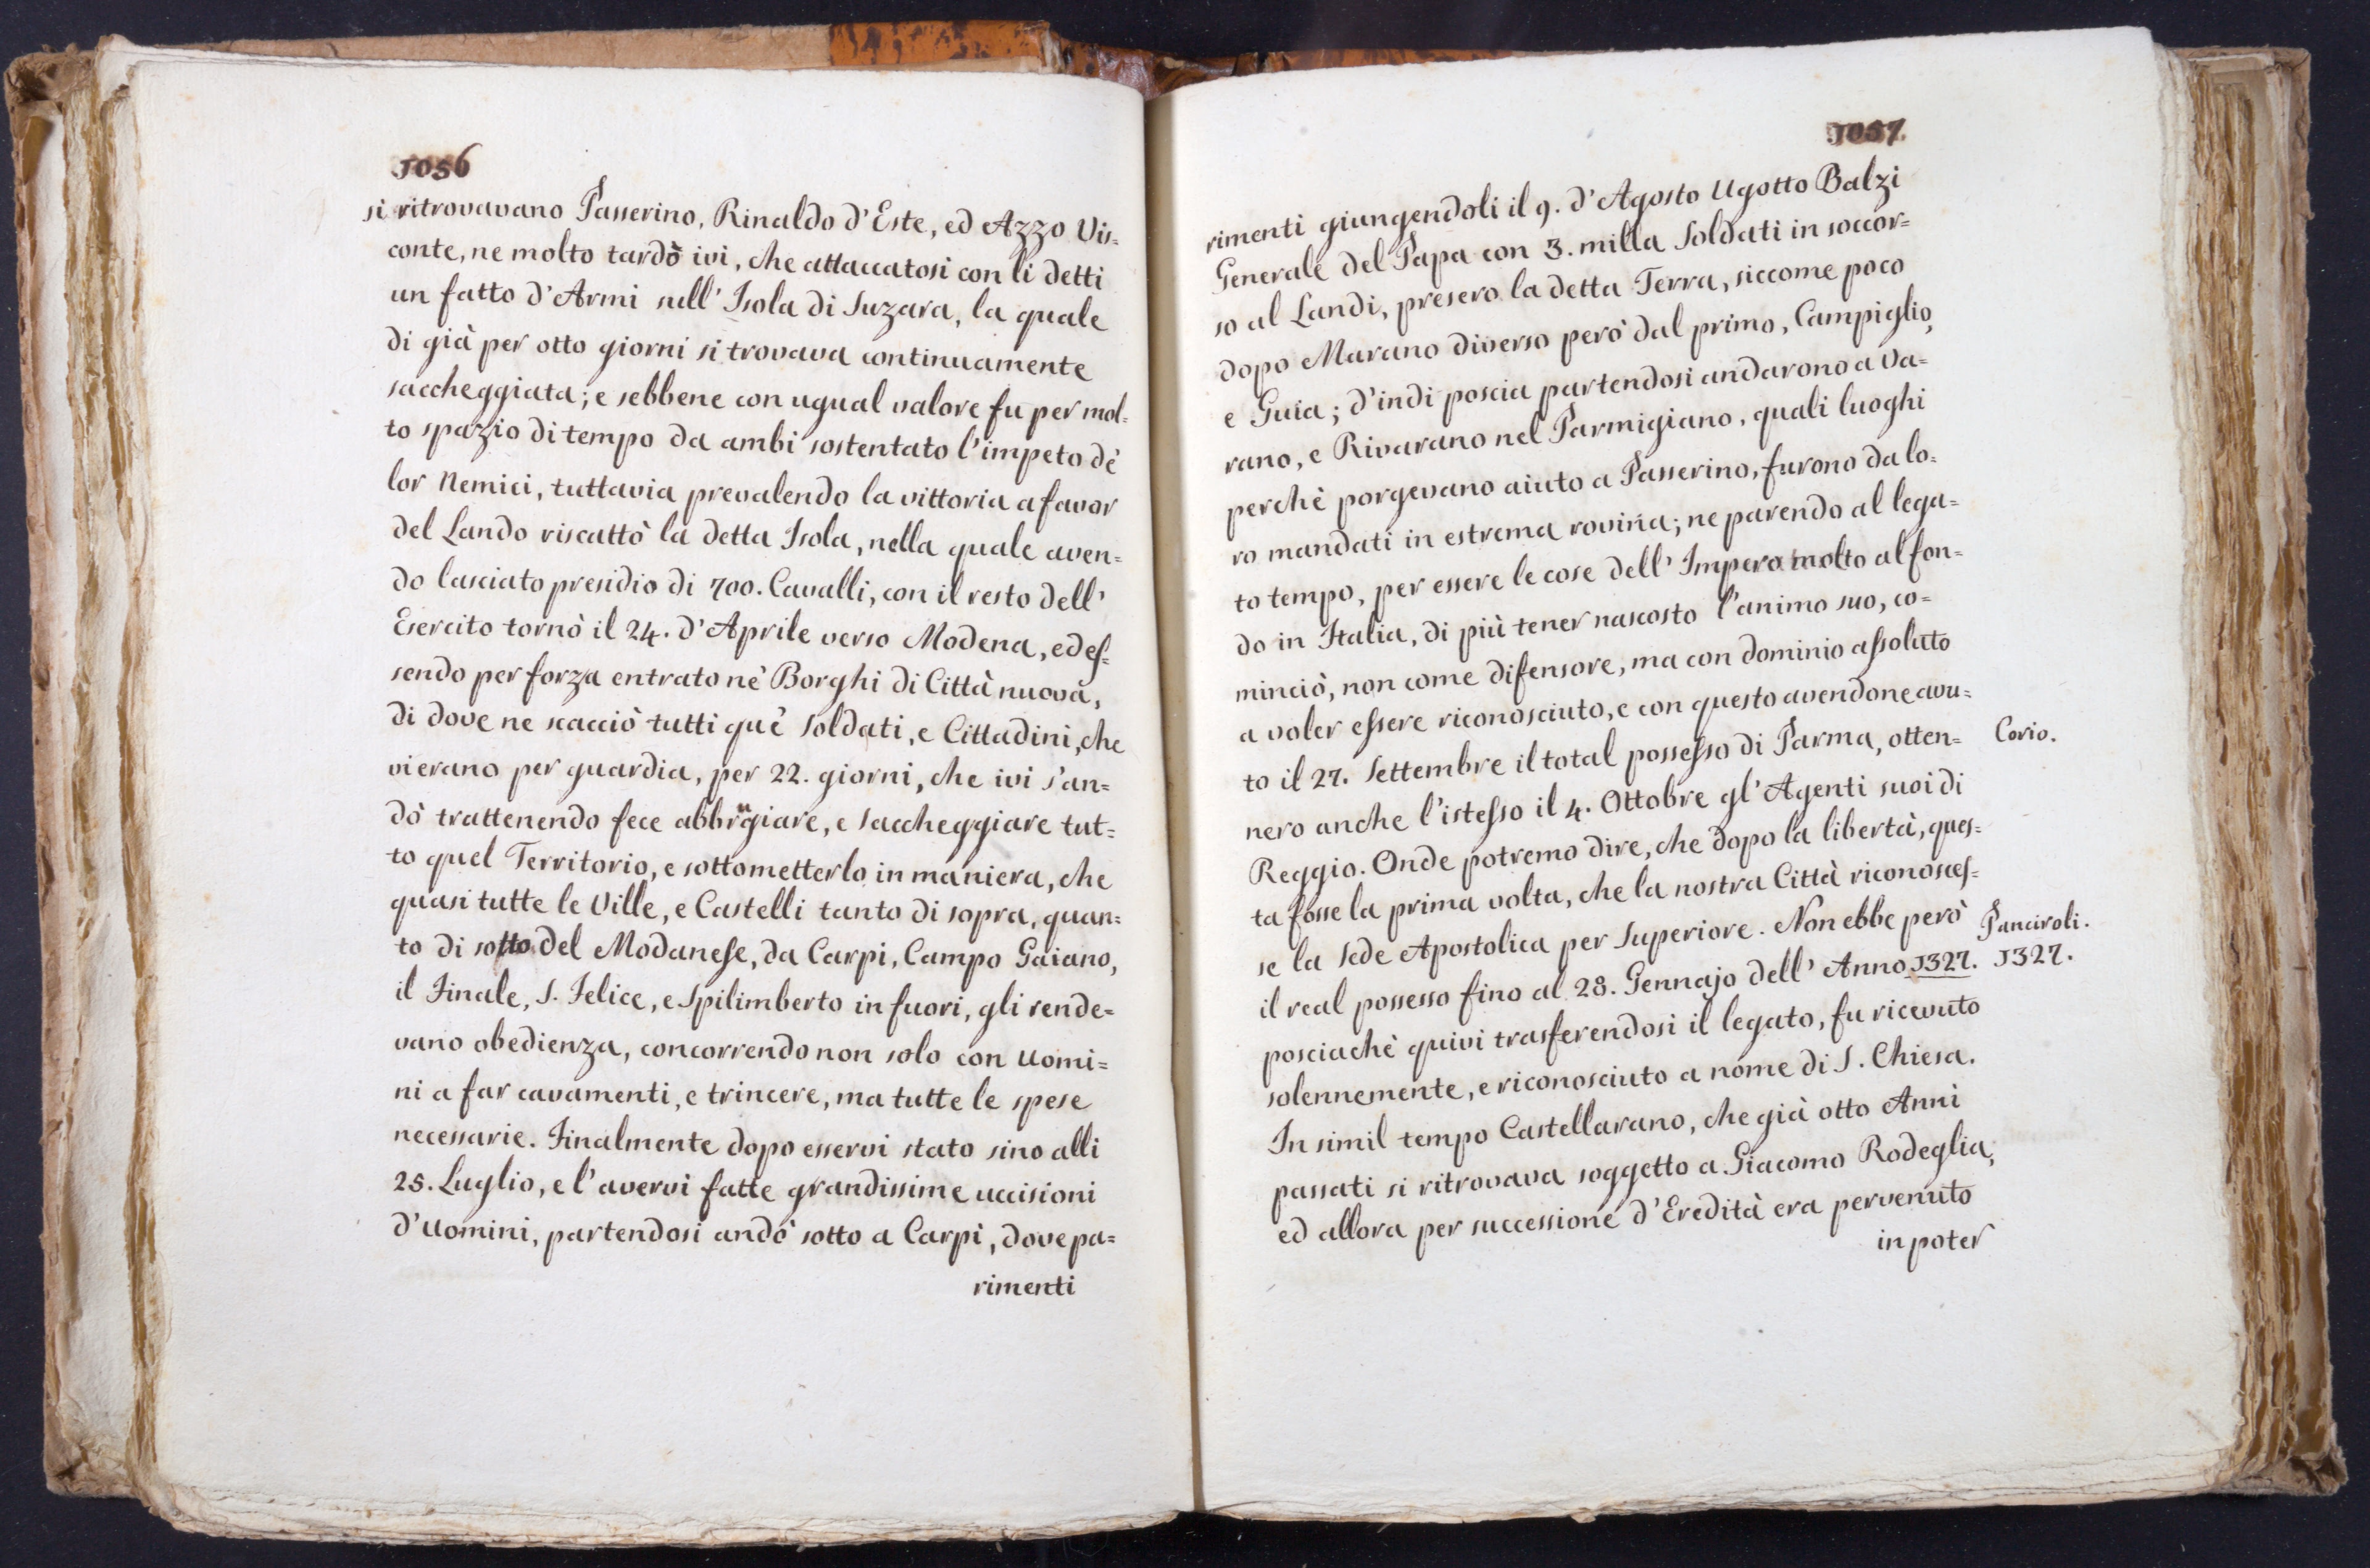 1056
si ritrovavano Passerino, Rinaldo d'Este, ed Azzo Vis=
conte, ne molto tardò ivi, che attaccatosi con li detti
un fatto d'Armi sull' Isola di Suzara, la quale
di già per otto giorni si trovava continuamente
saccheggiata; e sebbene con ugual valore fu per mol=
to spazio di tempo da ambi sostentato l'impeto dè
lor Nemici, tuttavia prevalendo la vittoria a favor
del Lando riscattò la detta Isola, nella quale aven=
do lasciato presidio di 700. Cavalli, con il resto dell'
Esercito tornò il 24. d'Aprile verso Modena, ed es=
sendo per forza entrato nè Borghi di Città nuova,
di dove ne scacciò tutti què Soldati, e Cittadini, che
vi erano per guardia, per 22. giorni, che ivi s'an=
dò trattenendo fece abbrugiare, e saccheggiare tut=
to quel Territorio, e sottometterlo in maniera, che
quasi tutte le Ville, e Castelli tanto di sopra, quan=
to di sotto del Modanese, da Carpi, Campo Gaiano,
il Finale, S. Felice, e Spilimberto in fuori, gli rende=
vano obedienza, concorrendo non solo con Uomi=
ni a far cavamenti, e trincere, ma tutte le spese
necessarie. Finalmente dopo esservi stato sino alli
25. Luglio, e l'avervi fatte grandissime uccisioni
d'Uomini, partendosi andò sotto a Carpi, dove pa=
rimenti
1057.
rimenti giungendoli il 9. d'Agosto Ugotto Balzi
Generale del Papa con 3. milla Soldati in soccor=
so al Landi, presero la detta Terra, siccome poco
dopo Marano diverso però dal primo, Campiglio,
e Guia; d'indi poscia partendosi andarono a Va=
rano, e Rivarano nel Parmigiano, quali luoghi
perchè porgevano aiuto a Passerino, furono da lo=
ro mandati in estrema rovina; ne parendo al lega=
to tempo, per essere le cose dell' Impero molto al fon=
do in Italia, di più tener nascosto l'animo suo, co=
minciò, non come difensore, ma con dominio assoluto
a voler essere riconosciuto, e con questo avendone avu=
to il 27. Settembre il total possesso di Parma, otten= Corio.
nero anche l'istesso il 4. Ottobre gl'Agenti suoi di
Reggio. Onde potremo dire, che dopo la libertà, ques=
ta fosse la prima volta, che la nostra Città riconosces=
se la Sede Apostolica per Superiore. Non ebbe però Panciroli.
il real possesso fino al 28. Gennajo dell' Anno 1327. 1327.
posciachè quivi trasferendosi il legato, fu ricevuto
solennemente, e riconosciuto a nome di S. Chiesa.
In simil tempo Castellarano, che già otto Anni
passati si ritrovava soggetto a Giacomo Rodeglia,
ed allora per successione d'Eredità era pervenuto
in poter